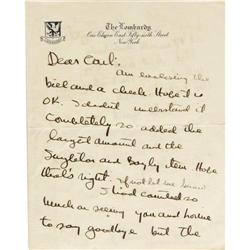 The Lombardy
One Eleven East Fifty-sixth Street
New York
Dear Carl:
Am enclosing the
bill and a check. Hope it is
OK. I didn't understand it
completely so added the
largest amount and the
and Hope
that's right. if not let me know
I had counted so
much on seeing you and
to say goodbye but the